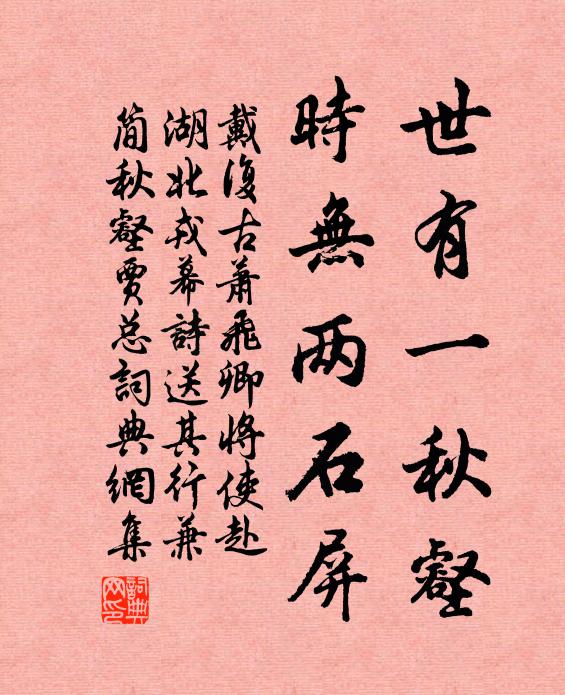 世有一秋壑
時無两石屏
戴復古蕭飛卿將使赴
湖北戎幕詩送其行兼
簡秋壑賈总詞典網集
詞典网印